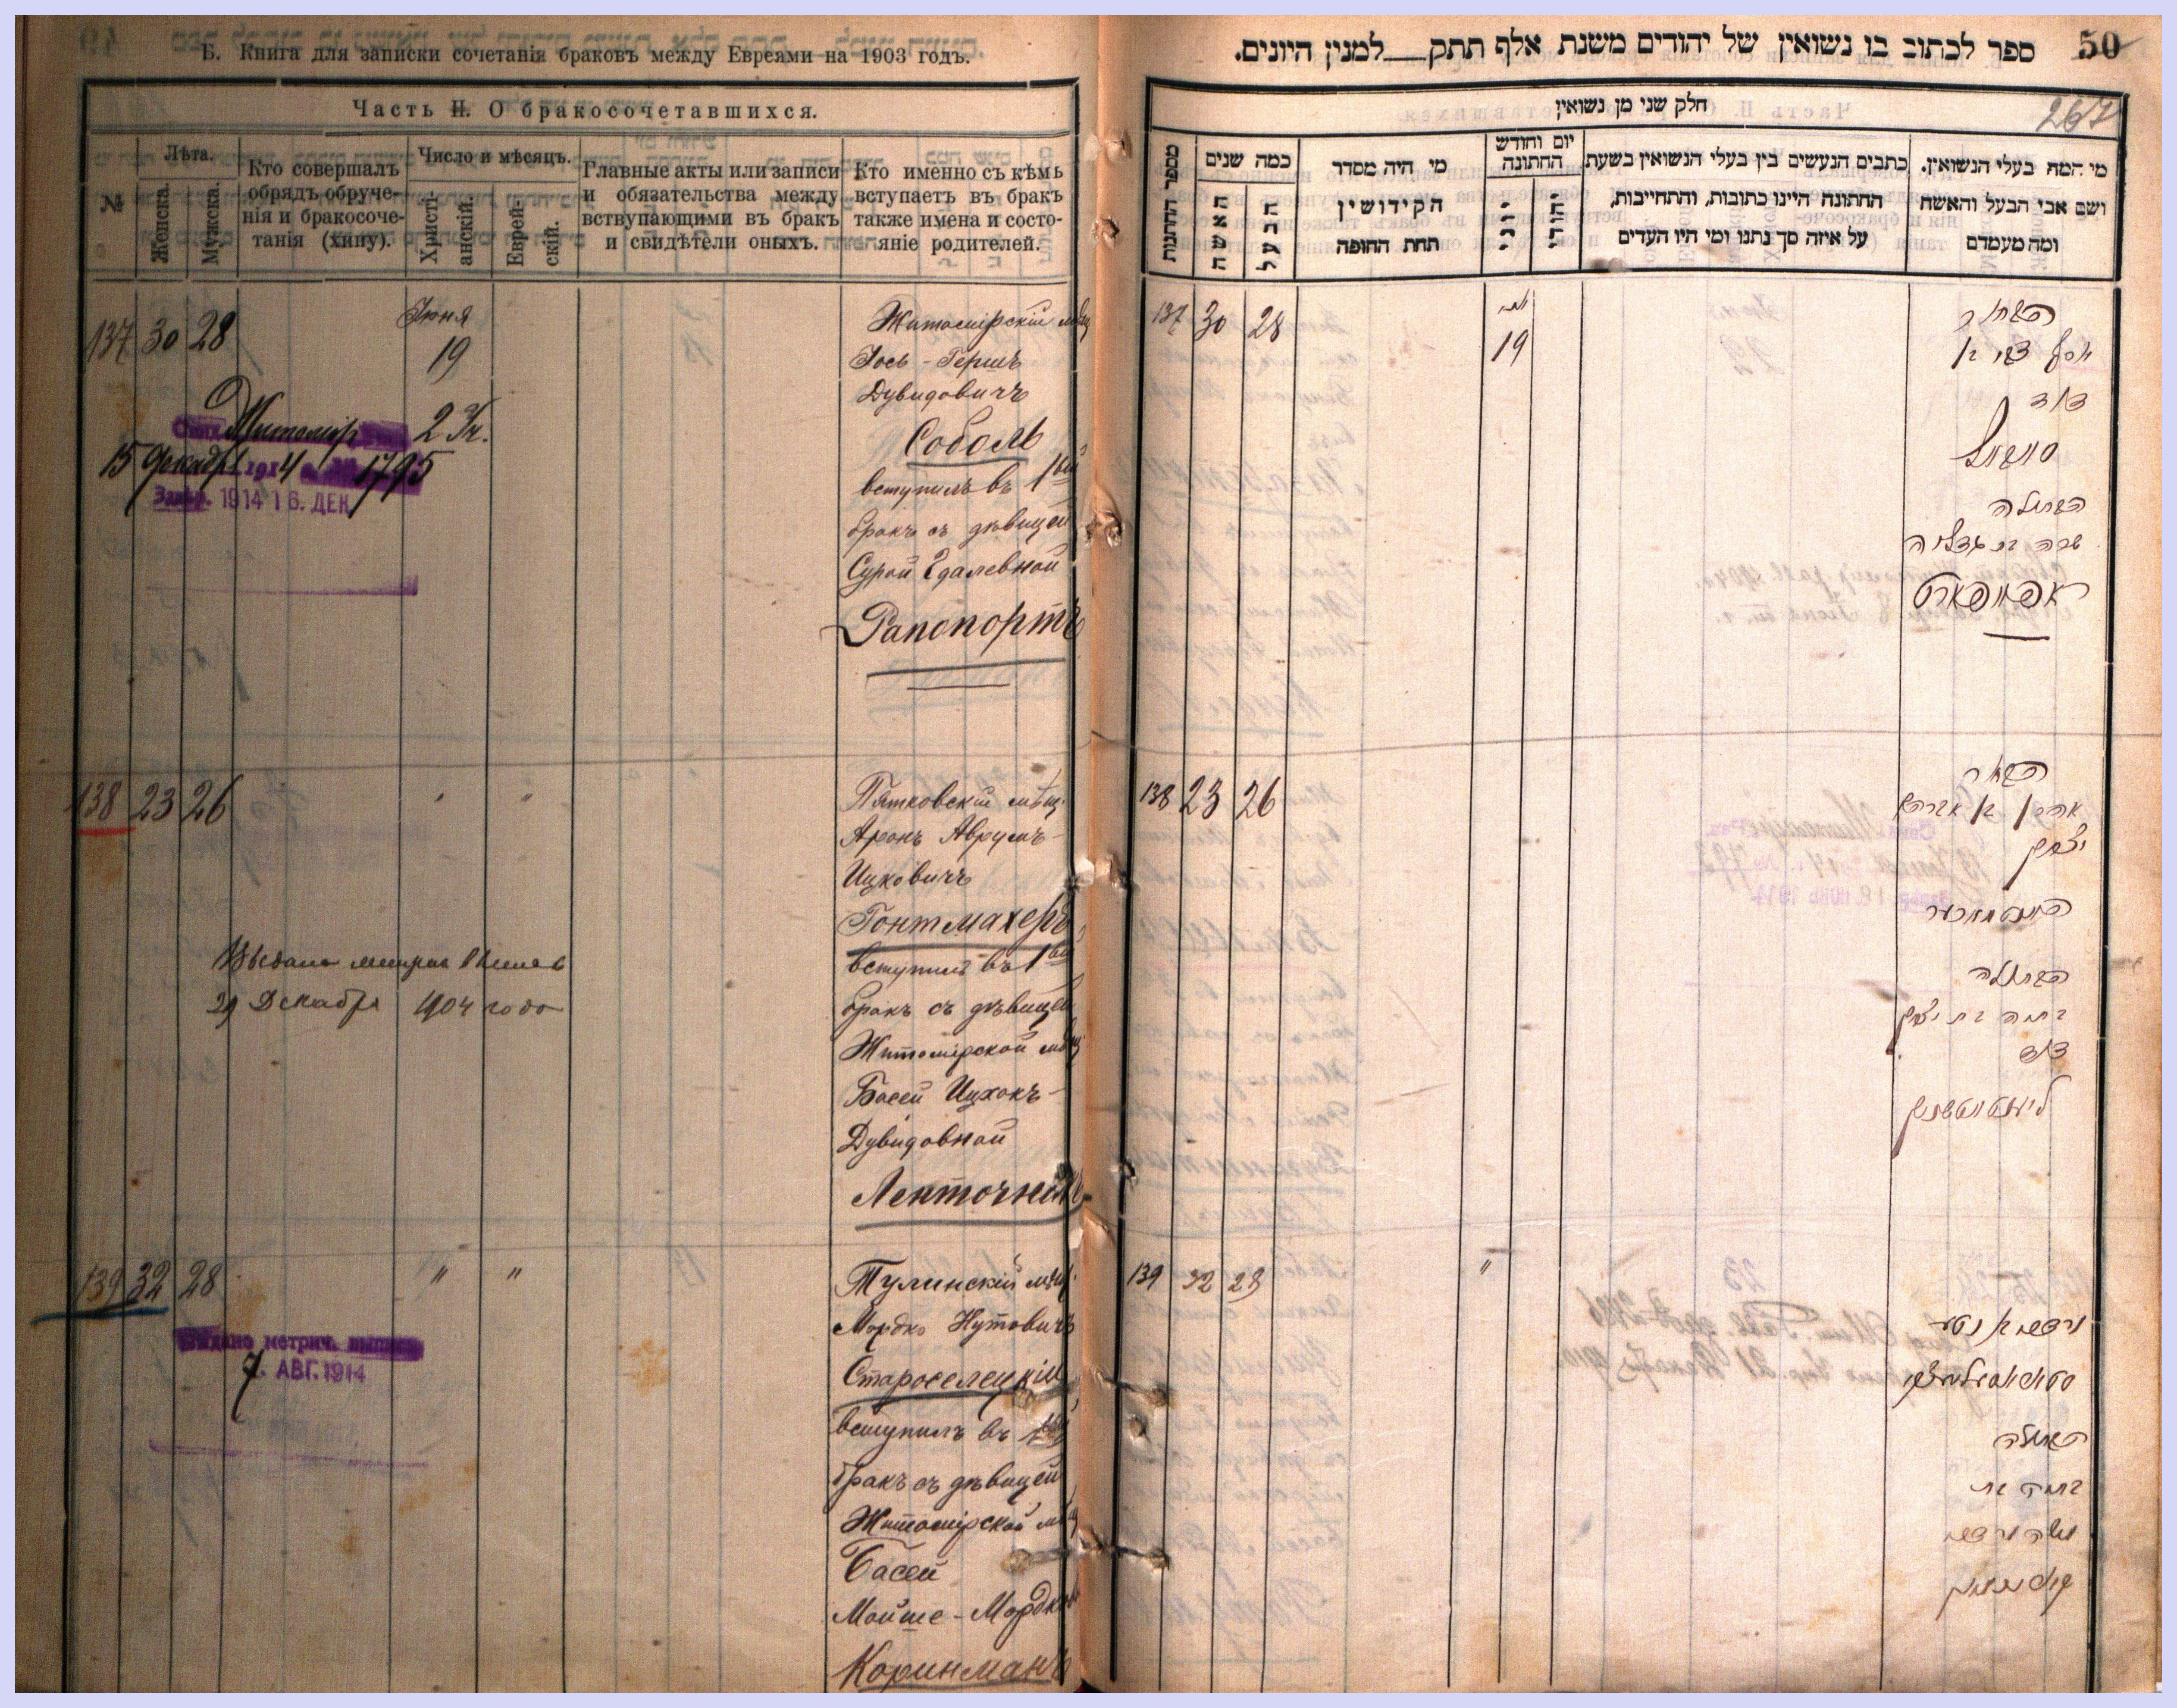 Б. Книга для записки сочетанія браковъ между Евреями на 1903 годъ.
Часть II. О бракосочетавшихся.
№
Лѣта.
Женска.
Мужска.
Кто совершалъ
обрядъ обруче-
нія и бракосоче-
танія (хипу).
Число и мѣсяцъ.
Христі-
анскій.
Еврей-
скій.
Главные акты или записи
и обязательства между
вствупающими въ бракъ
и свидѣтели оныхъ.
Кто именно съ кѣмъ
вступаетъ въ бракъ
также имена и состо-
яніе родителей.
137 30 28
Іюня
19
Житомірскій мѣщ
Іось-Гершъ
Дувидовичъ
Соболь
вступилъ въ 1вый
бракъ съ дѣвицей
Сурой Гдалевной
Рапопортъ
Житомір
15 Декабр 1914 1795
1914 16. ДЕК.
138 23 26
" "
Пятковскій мѣщ.
Аронъ Аврумъ-
Ицковичъ
Гонтмахеръ
вступилъ въ 1вый
бракъ съ дѣвицей
Житомірской мѣщ
Басей Ицхокъ-
Дувидовной
29 Декабря 1904 года
139 32 28
" "
Тулинскій мѣщ.
Мордко Нутовичъ
Староселецкій
вступилъ въ
бракъ съ дѣвицей
Житомірской мѣщ
Басей
Мойше-Мордков
Коринманъ
Выдано метрич. выпись
7 АВГ. 1914
50
ספר לכתוב בו נשואין של יהודים משנת אלף תתק למנין היונים.
267
חלק שני מן נשואין
מספר החתונות
כמה שנים
האשה
הבעל
מי היה מסדר
הקידושין
תחת החופה
יום וחודש
החתונה
יוני
יהודי
כתבים הנעשים בין בעלי הנשואין בשעת
החתונה היינו כתובות, והתחייבות,
על איזה סך נתנו ומי היו העדים
מי המה בעלי הנשואין.
ושם אבי הבעל והאשה
ומה מעמדם
137 30 28
19
הבחור
יוסף צבי בן
דוד
סובול
הבתולה
שרה בת גדליה
ראפאפארט
138 23 26
הבחור
אהרן בן אברהם
יצחק
הבתולה
בתיה בת יצחק
דוד
139 32 28
"
הבתולה
בתיה בת
משה מרדכי